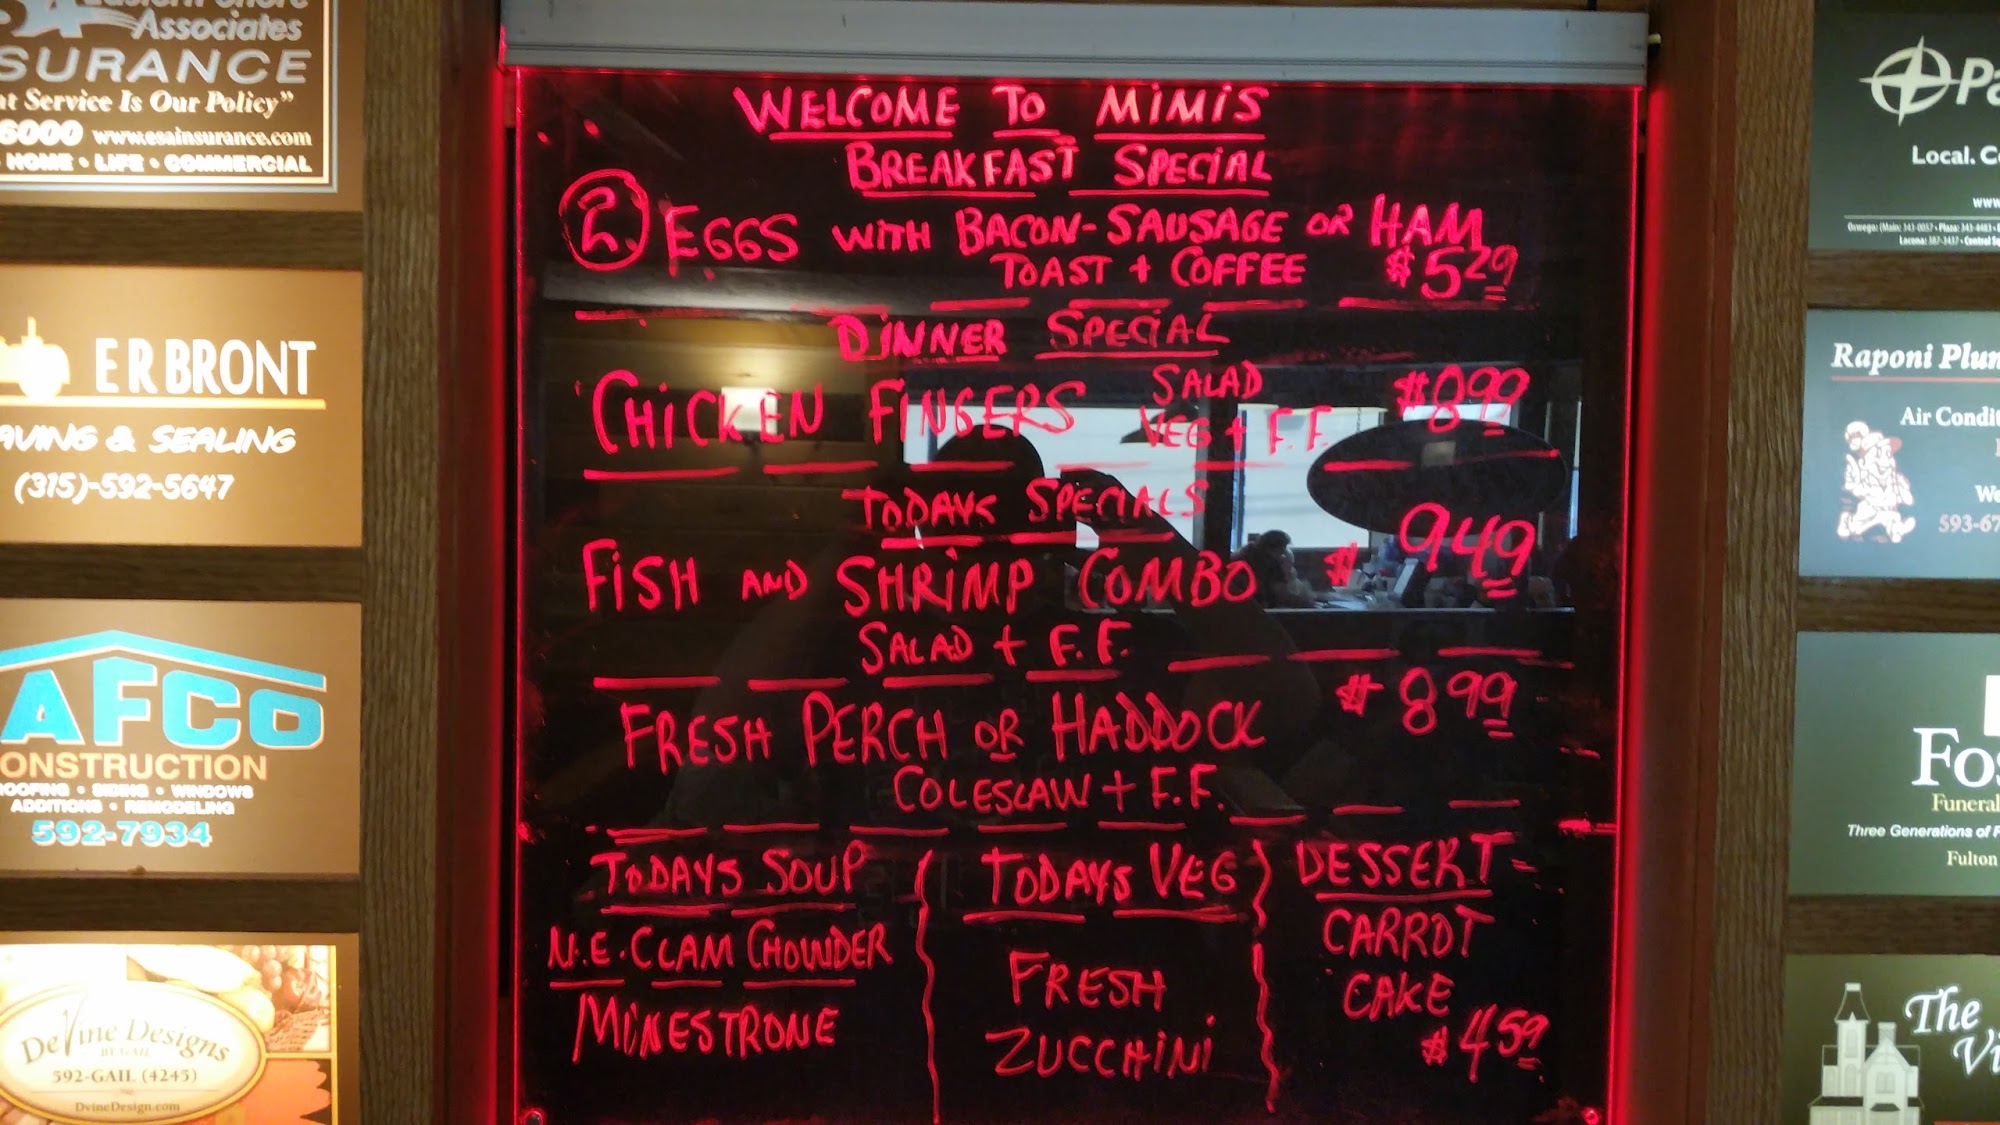 Associates
SURANCE
Service Is Our Policy"
6000 www.esainsurance.com
HOME • LIFE • COMMERCIAL
ERBRONT
AVING & SEALING
(315)-592-5647
AFCO
ONSTRUCTION
ROOFING • SIDING • WINDOWS
ADDITIONS • REMODELING
592-7934
DeVine Designs
BY GAIL
592-GAIL (4245)
DvineDesign.com
WELCOME TO MIMIS
BREAKFAST SPECIAL
2 EGGS WITH BACON-SAUSAGE OR HAM
TOAST + COFFEE $5.29
DINNER SPECIAL
CHICKEN FINGERS SALAD $8.99
VEG + F.F.
TODAYS SPECIALS
FISH AND SHRIMP COMBO $9.49
SALAD + F.F.
FRESH PERCH OR HADDOCK $8.99
COLESLAW + F.F.
TODAYS SOUP
N.E. CLAM CHOWDER
MINESTRONE
TODAYS VEG
FRESH
ZUCCHINI
DESSERT
CARROT
CAKE
$4.59
Pa
Local. C
www.
Oswego: (Main: 343-0057 • Plaza: 343-4483 •
Lacona: 387-3437 • Central Sq
Raponi Plum
Air Condit
We
593-67
Fos
Funeral
Three Generations of F
Fulton
The
Vi